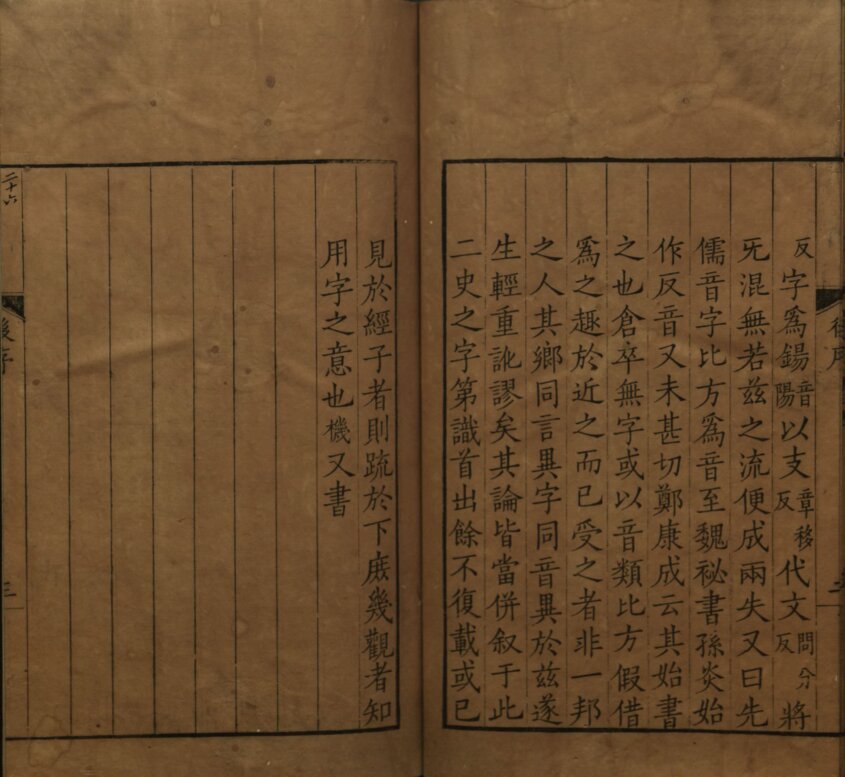 後序
三
反字爲鍚音陽以支章移反代文問分反將
旡混無若茲之流便成兩失又曰先
儒音字比方爲音至魏祕書孫炎始
作反音又未甚切鄭康成云其始書
之也倉卒無字或以音類比方假借
爲之趣於近之而已受之者非一邦
之人其鄉同言異字同音異於茲遂
生輕重訛謬矣其論皆當併叙于此
二史之字第識首出餘不復載或已
見於經子者則疏於下庶幾觀者知
用字之意也機又書
二十六
後序
三